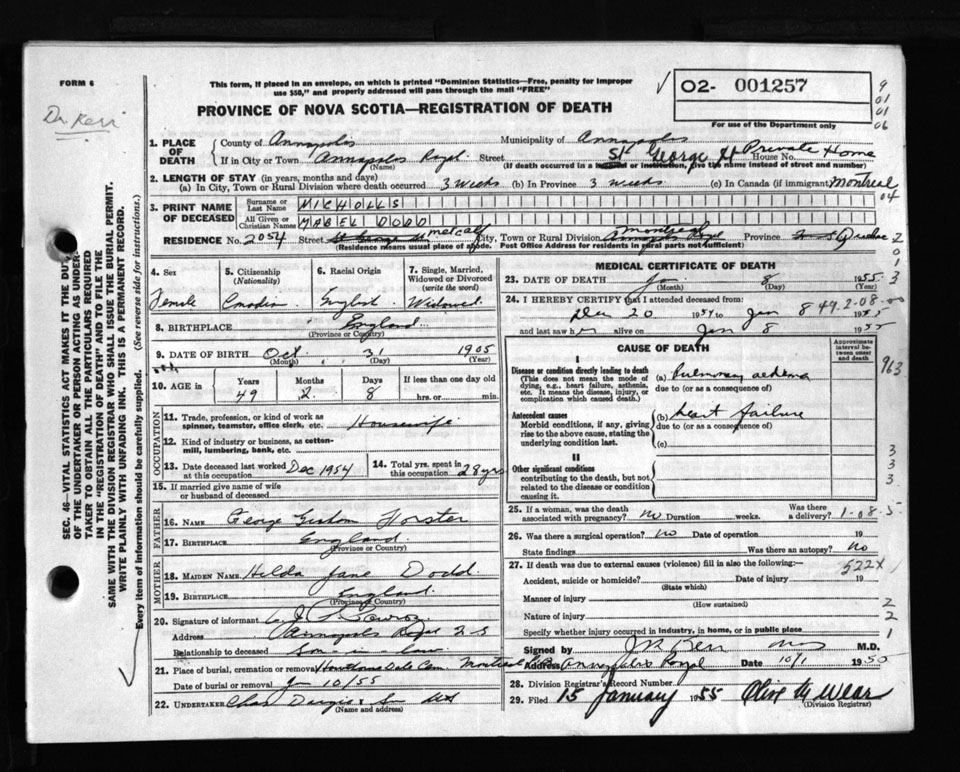 FORM 6
This form, if placed in an envelope, on which is printed "Dominion Statistics—Free, penalty for improper
use $50," and properly addressed will pass through the mail "FREE"
PROVINCE OF NOVA SCOTIA—REGISTRATION OF DEATH
02- 001257
For use of the Department only
9
01
01
06
Dr Kerr
1. PLACE OF DEATH
County of Annapolis Municipality of Annapolis
If in City or Town Annapolis Royal Street St George St House No. Private Home
(Name) (If death occurred in a hospital or institution, give the name instead of street and number)
2. LENGTH OF STAY (in years, months and days)
(a) In City, Town or Rural Division where death occurred 3 weeks (b) In Province 3 weeks (c) In Canada (if immigrant) Montreal
04
3. PRINT NAME OF DECEASED
Surname or Last Name NICHOLLS
All Given or Christian Names MABEL DODD
RESIDENCE No. 2054 Street St George St Metcalf City, Town or Rural Division Montreal Annapolis Royal Province N S Quebec
(Residence means usual place of abode. Post Office Address for residents in rural parts not sufficient)
2
0
1
3
4. Sex Female
5. Citizenship (Nationality) Canadian
6. Racial Origin English
7. Single, Married, Widowed or Divorced (write the word) Widowed
8. BIRTHPLACE England
(Province or Country)
9. DATE OF BIRTH Oct 31 1905
(Month) (Day) (Year)
10. AGE in Years 49 Months 2 Days 8 If less than one day old
hrs. or min.
OCCUPATION
11. Trade, profession, or kind of work as
spinner, teamster, office clerk, etc. Housewife
12. Kind of industry or business, as cotton-
mill, lumbering, bank, etc.
13. Date deceased last worked at this occupation Dec 1954
14. Total yrs. spent in this occupation 28 yrs
15. If married give name of wife
or husband of deceased
FATHER
16. NAME George Forster
17. BIRTHPLACE England
(Province or Country)
MOTHER
18. MAIDEN NAME Hilda Jane Dodd
19. BIRTHPLACE England
(Province or Country)
20. Signature of informant
Address Annapolis Royal N S
Relationship to deceased Son-in-law
21. Place of burial, cremation or removal Cem Montreal
Date of burial or removal Jan 10/55
22. UNDERTAKER Chas Dargie & Son
(Name and address)
MEDICAL CERTIFICATE OF DEATH
23. DATE OF DEATH Jan 8 1955
(Month) (Day) (Year)
24. I HEREBY CERTIFY that I attended deceased from:
Dec 20 1954 to Jan 8 1955
49 2-08
and last saw her alive on Jan 8 1955
CAUSE OF DEATH
Approximate interval between onset and death
963
I
Disease or condition directly leading to death
(This does not mean the mode of
dying, e.g., heart failure, asthenia,
etc. It means the disease, injury, or
complication which caused death.)
(a) pulmonary aedema
due to (or as a consequence of)
Antecedent causes
Morbid conditions, if any, giving
rise to the above cause, stating the
underlying condition last.
(b) heart failure
due to (or as a consequence of)
(c)
II
Other significant conditions
contributing to the death, but not
related to the disease or condition
causing it.
3
3
3
25. If a woman, was the death associated with pregnancy? No Duration weeks. Was there a delivery? 1-08-5
26. Was there a surgical operation? No Date of operation 19
State findings Was there an autopsy? No
27. If death was due to external causes (violence) fill in also the following: 522X
Accident, suicide or homicide? Date of injury 19
(State which)
Manner of injury
(How sustained)
Nature of injury
Specify whether injury occurred in industry, in home, or in public place
2
2
1
Signed by J R Kerr M.D.
Address Annapolis Royal Date 10/1 1955
28. Division Registrar's Record Number
29. Filed 15 January 1955 Olive M Wear
(Division Registrar)
SEC. 46—VITAL STATISTICS ACT MAKES IT THE DUTY
OF THE UNDERTAKER OR PERSON ACTING AS UNDER-
TAKER TO OBTAIN ALL THE PARTICULARS REQUIRED
IN THE "REGISTRATION OF DEATH" AND TO FILE THE
SAME WITH THE DIVISION REGISTRAR WHO SHALL ISSUE THE BURIAL PERMIT.
WRITE PLAINLY WITH UNFADING INK. THIS IS A PERMANENT RECORD.
Every item of information should be carefully supplied. (See reverse side for instructions.)